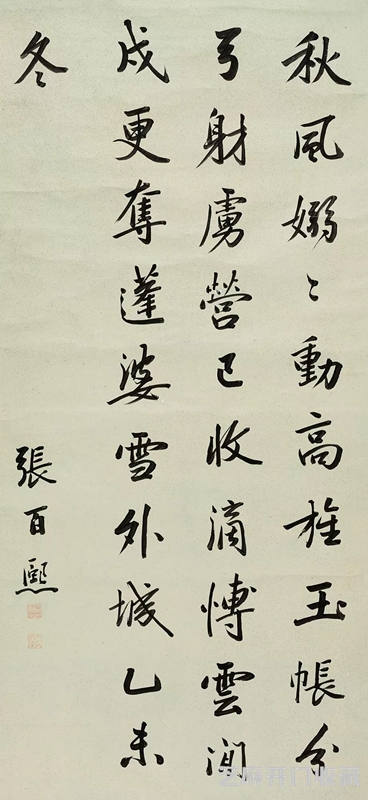 秋風嫋〻動高旌玉帳分
弓射虜營已收滴愽雲間
戍更奪蓬婆雪外城乙未
冬
張百熙